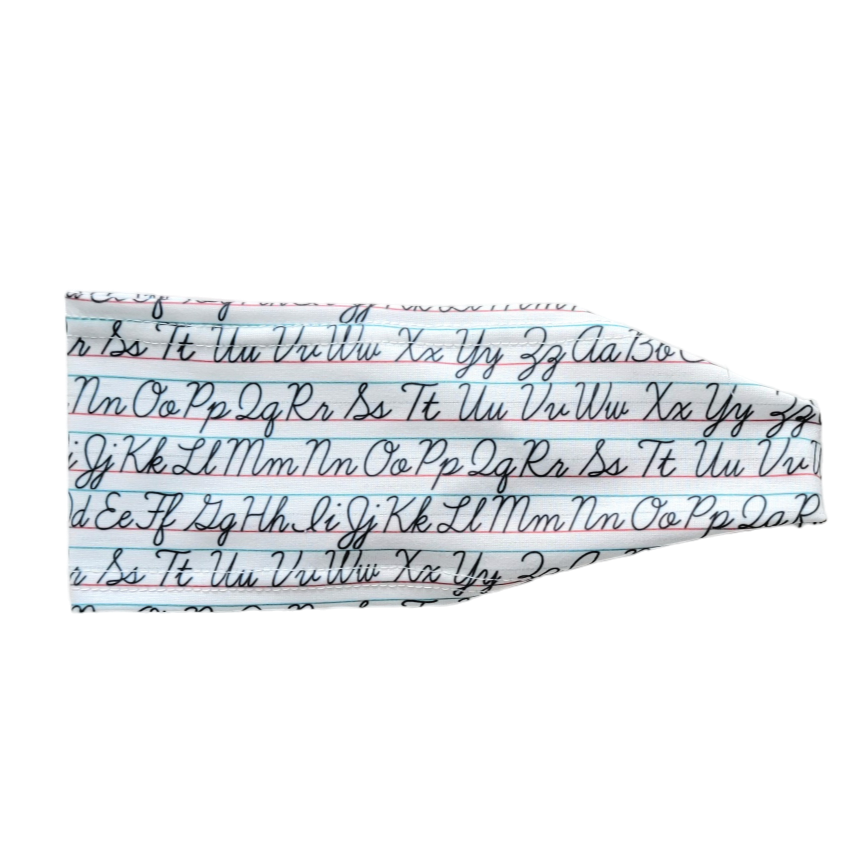 Ss Tt Uu Vv Ww Xx Yy Zz Aa
Nn Oo Pp Qq Rr Ss Tt Uu Vv Ww Xx Yy Zz
Jj Kk Ll Mm Nn Oo Pp Qq Rr Ss Tt Uu Vv
d Ee Ff Gg Hh Ii Jj Kk Ll Mm Nn Oo Pp Qq R
r Ss Tt Uu Vv Ww Xx Yy